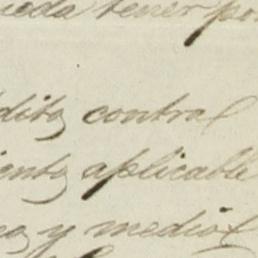 ueda tener po
dito contra
iento aplicable
y medio